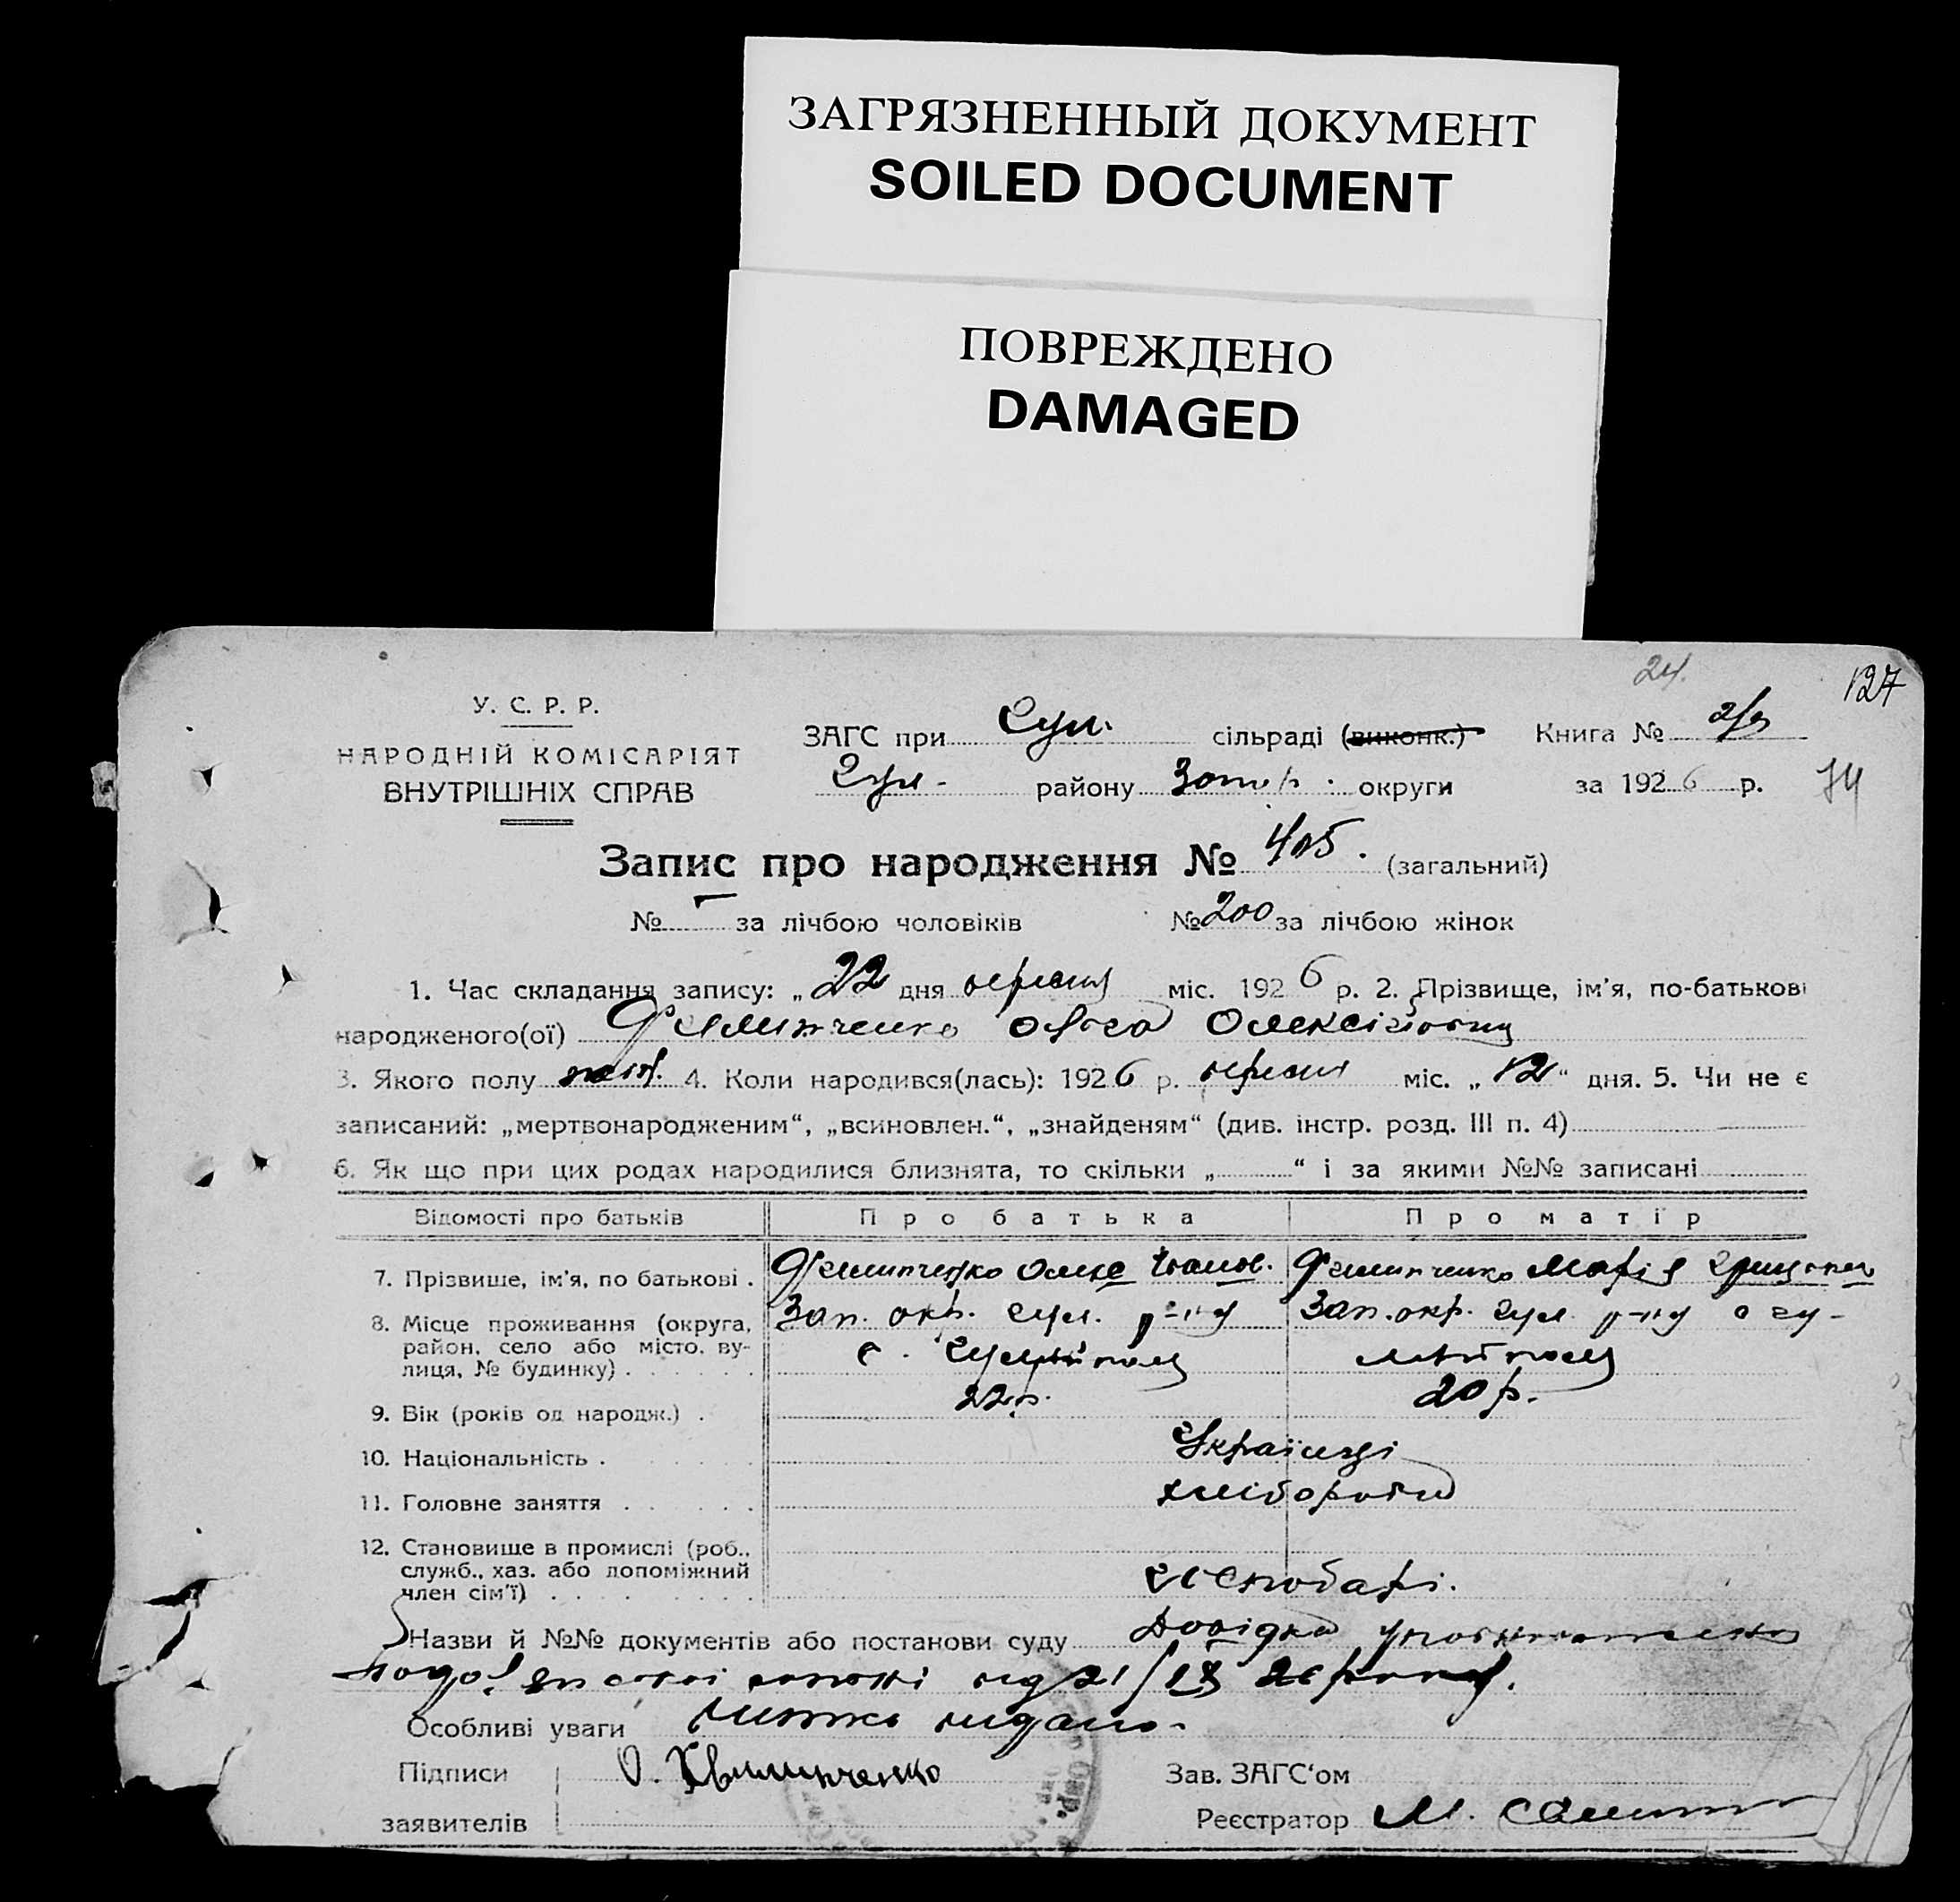 ЗАГРЯЗНЕННЫЙ ДОКУМЕНТ
SOILED DOCUMENT
ПОВРЕЖДЕНО
DAMAGED
24.
127
У. С. Р. Р.
НАРОДНІЙ КОМІСАРІЯТ
ВНУТРІШНІХ СПРАВ
ЗАГС при Гул. сільраді (виконк.) Книга №
Гул. району Запор. округи за 1926 р. 74
Запис про народження № 405. (загальний)
№ – за лічбою чоловіків № 200 за лічбою жінок
1. Час складання запису: „22 дня вересня міс. 1926 р. 2. Прізвище, ім'я, по-батькові
народженого(ої) Филипченко Ольга Олексіївна
3. Якого полу жін. 4. Коли народився(лась): 1926 р. вересня міс. „12“ дня. 5. Чи не є
записаний: „мертвонародженим“, „всиновлен.“, „знайденям“ (див. інстр. розд. III п. 4)
6. Як що при цих родах народилися близнята, то скільки „ “ і за якими №№ записані
Відомості про батьків Про батька Про матір
7. Прізвище, ім'я, по батькові . Филипченко Олекс. Іванов. Филипченко Марія
8. Місце проживання (округа, район, село або місто, вулиця, № будинку) . Зап. окр. Гул. р-ну с. Гуляйполе Зап. окр. Гул. р-ну с Гуляйполе
9. Вік (років од народж.) . 22 р. 20 р.
10. Національність . Українці
11. Головне заняття . хлібороби
12. Становище в промислі (роб., служб., хаз. або допоміжний член сім'ї) . господарі.
Назви й №№ документів або постанови суду Довідка
від 21/IX 26 року.
Особливі уваги видано.
Підписи О. Хвилипченко Зав. ЗАГС‘ом
заявителів Реєстратор М.